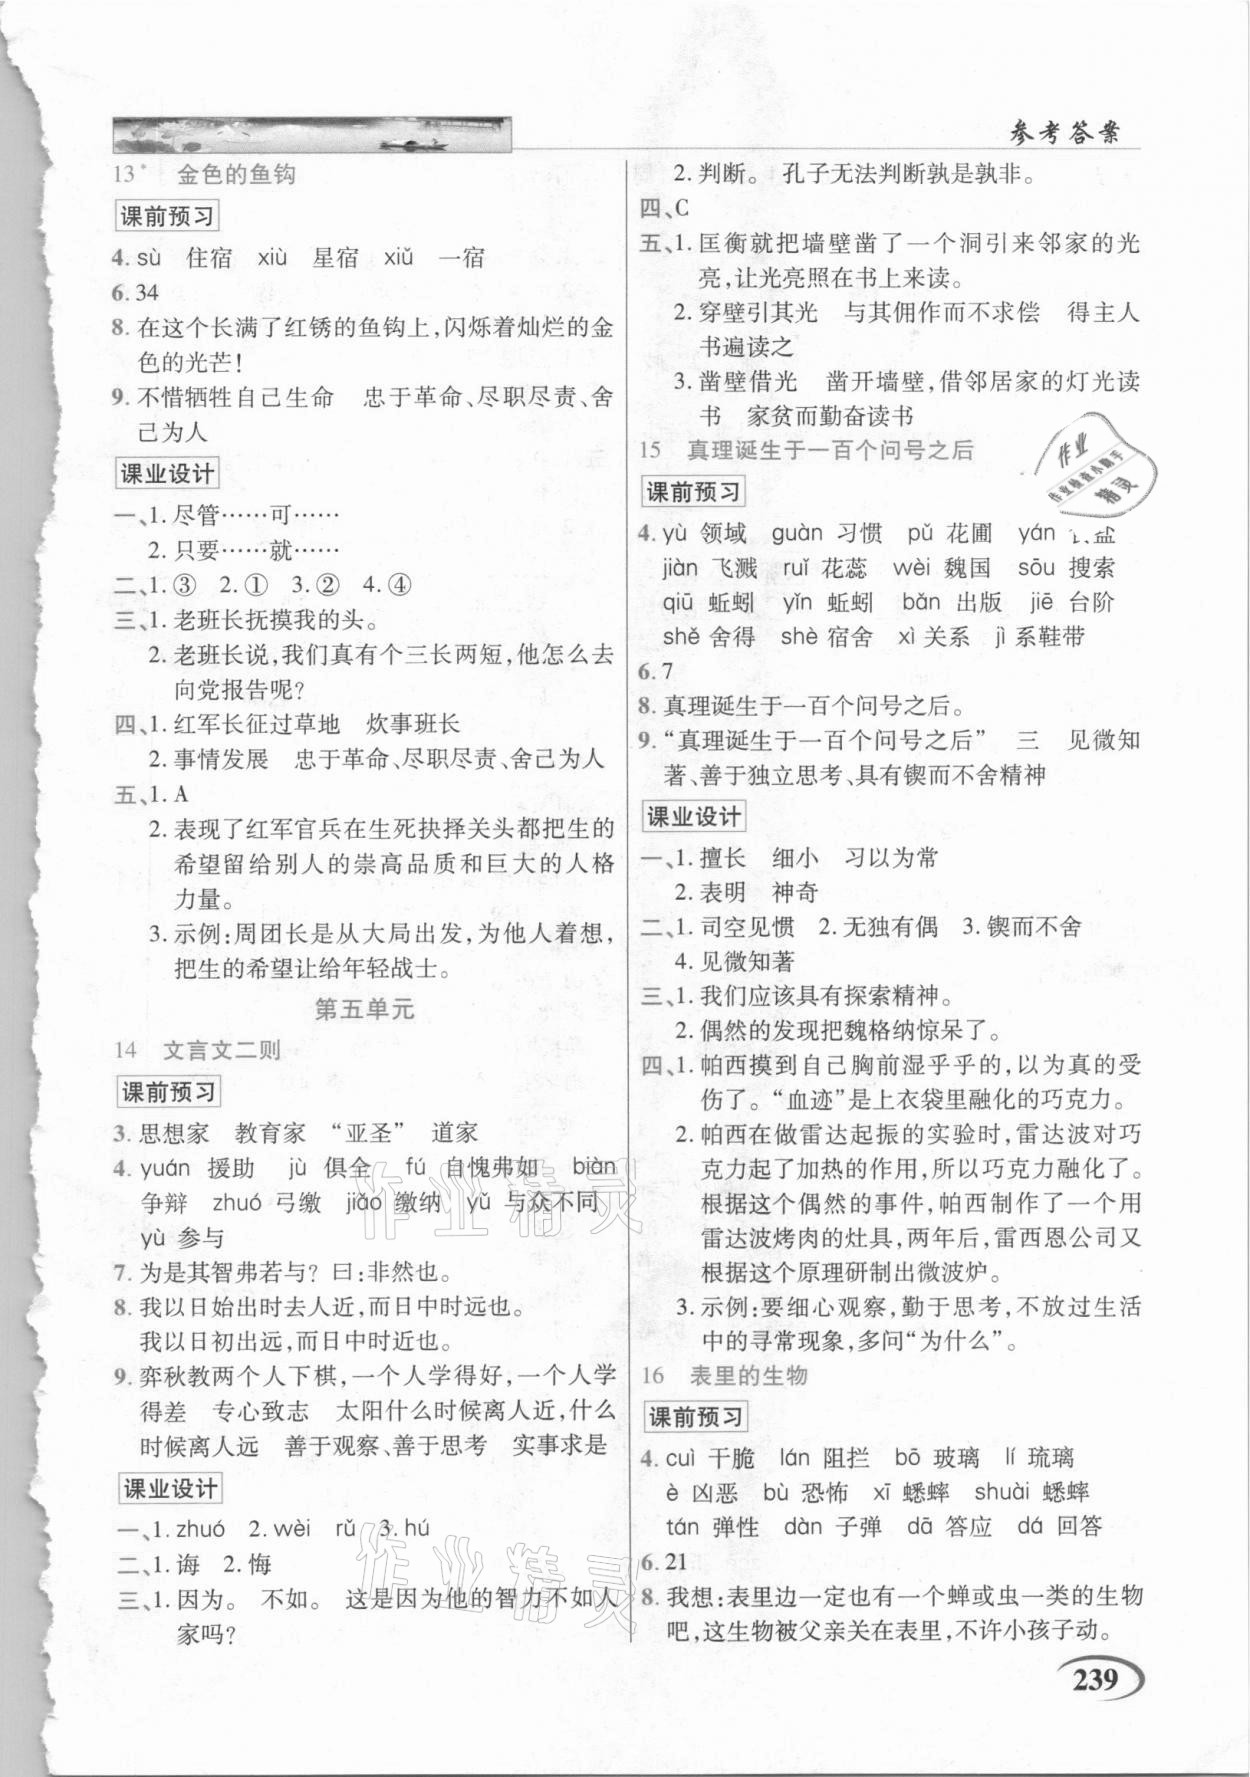 参考答案
13* 金色的鱼钩
课前预习
4. sù 住宿 xiù 星宿 xiǔ 一宿
6. 34
8. 在这个长满了红锈的鱼钩上,闪烁着灿烂的金
色的光芒!
9. 不惜牺牲自己生命 忠于革命、尽职尽责、舍
己为人
课业设计
一、1. 尽管……可……
2. 只要……就……
二、1. ③ 2. ① 3. ② 4. ④
三、1. 老班长抚摸我的头。
2. 老班长说,我们真有个三长两短,他怎么去
向党报告呢?
四、1. 红军长征过草地 炊事班长
2. 事情发展 忠于革命、尽职尽责、舍己为人
五、1. A
2. 表现了红军官兵在生死抉择关头都把生的
希望留给别人的崇高品质和巨大的人格
力量。
3. 示例:周团长是从大局出发,为他人着想,
把生的希望让给年轻战士。
第五单元
14 文言文二则
课前预习
3. 思想家 教育家 “亚圣” 道家
4. yuán 援助 jù 俱全 fú 自愧弗如 biàn
争辩 zhuó 弓缴 jiǎo 缴纳 yǔ 与众不同
yù 参与
7. 为是其智弗若与? 曰:非然也。
8. 我以日始出时去人近,而日中时远也。
我以日初出远,而日中时近也。
9. 弈秋教两个人下棋,一个人学得好,一个人学
得差 专心致志 太阳什么时候离人近,什么
时候离人远 善于观察、善于思考 实事求是
课业设计
一、1. zhuó 2. wèi rǔ 3. hú
二、1. 诲 2. 悔
三、1. 因为。 不如。 这是因为他的智力不如人
家吗?
2. 判断。 孔子无法判断孰是孰非。
四、C
五、1. 匡衡就把墙壁凿了一个洞引来邻家的光
亮,让光亮照在书上来读。
2. 穿壁引其光 与其佣作而不求偿 得主人
书遍读之
3. 凿壁借光 凿开墙壁,借邻居家的灯光读
书 家贫而勤奋读书
15 真理诞生于一百个问号之后
课前预习
4. yù 领域 guàn 习惯 pǔ 花圃 yán 盐
jiàn 飞溅 ruǐ 花蕊 wèi 魏国 sōu 搜索
qiū 蚯蚓 yǐn 蚯蚓 bǎn 出版 jiē 台阶
shě 舍得 shè 宿舍 xì 关系 jì 系鞋带
6. 7
8. 真理诞生于一百个问号之后。
9. “真理诞生于一百个问号之后” 三 见微知
著、善于独立思考、具有锲而不舍精神
课业设计
一、1. 擅长 细小 习以为常
2. 表明 神奇
二、1. 司空见惯 2. 无独有偶 3. 锲而不舍
4. 见微知著
三、1. 我们应该具有探索精神。
2. 偶然的发现把魏格纳惊呆了。
四、1. 帕西摸到自己胸前湿乎乎的,以为真的受
伤了。“血迹”是上衣袋里融化的巧克力。
2. 帕西在做雷达起振的实验时,雷达波对巧
克力起了加热的作用,所以巧克力融化了。
根据这个偶然的事件,帕西制作了一个用
雷达波烤肉的灶具,两年后,雷西恩公司又
根据这个原理研制出微波炉。
3. 示例:要细心观察,勤于思考,不放过生活
中的寻常现象,多问“为什么”。
16 表里的生物
课前预习
4. cuì 干脆 lán 阻拦 bō 玻璃 lí 琉璃
è 凶恶 bù 恐怖 xī 蟋蟀 shuài 蟋蟀
tán 弹性 dàn 子弹 dā 答应 dá 回答
6. 21
8. 我想:表里边一定也有一个蝉或虫一类的生物
吧,这生物被父亲关在表里,不许小孩子动。
239
作业
作业检查小助手
精灵
作业精灵
作业精灵